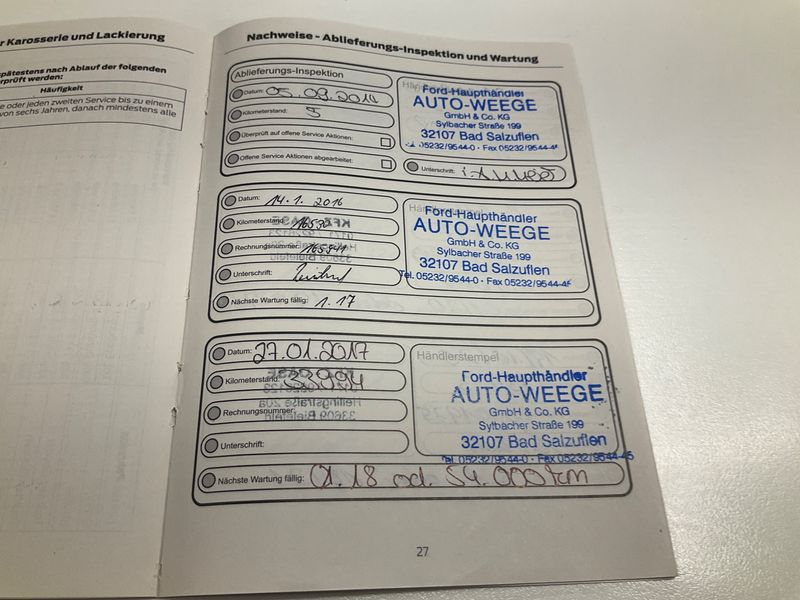 r Karosserie und Lackierung
pätestens nach Ablauf der folgenden
erprüft werden:
Häufigkeit
e oder jeden zweiten Service bis zu einem
von sechs Jahren, danach mindestens alle
Nachweise - Ablieferungs-Inspektion und Wartung
Ablieferungs-Inspektion
Datum: 05.09.2014
Kilometerstand: 5
Überprüft auf offene Service Aktionen:
Offene Service Aktionen abgearbeitet:
Ford-Haupthändler
AUTO-WEEGE
GmbH & Co. KG
Sylbacher Straße 199
32107 Bad Salzuflen
05232/9544-0 · Fax 05232/9544-45
Unterschrift:
Datum: 14.1.2016
Kilometerstand:
Rechnungsnummer:
Unterschrift:
Nächste Wartung fällig: 1.17
Ford-Haupthändler
AUTO-WEEGE
GmbH & Co. KG
Sylbacher Straße 199
32107 Bad Salzuflen
Tel. 05232/9544-0 · Fax 05232/9544-45
Datum: 27.01.2017
Kilometerstand:
Rechnungsnummer:
Unterschrift:
Nächste Wartung fällig: 01.18 od. 54.000km
Händlerstempel
Ford-Haupthändler
AUTO-WEEGE
GmbH & Co. KG
Sylbacher Straße 199
32107 Bad Salzuflen
Tel. 05232/9544-0 · Fax 05232/9544-45
27